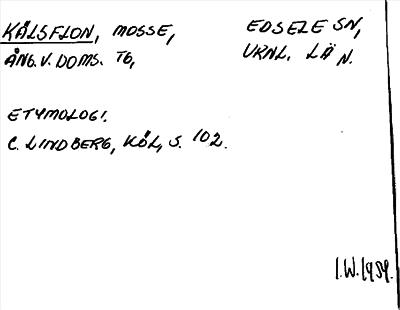 KÅLSFLON, MOSSE, EDSELE SN,
ÅNG. V. DOMS. TG, VRNL. LÄN.
ETYMOLOGI.
C. LINDBERG, KÖL, S. 102.
I.W. 1959.